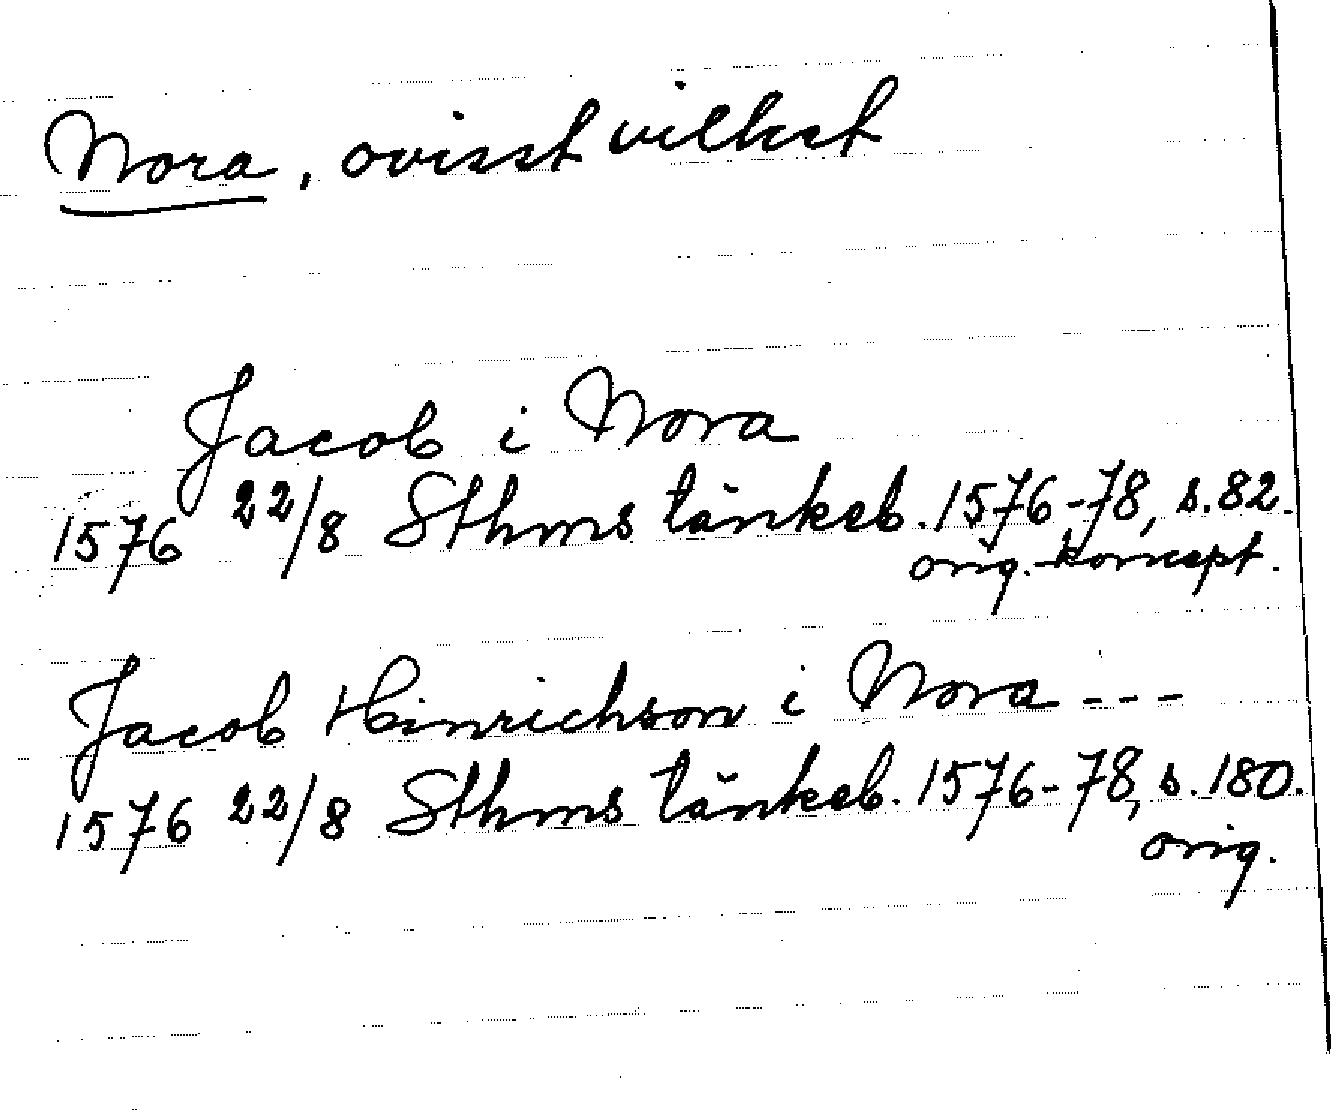 Nora, ovisst vilket
Jacob i Nora
1576 22/8 Sthms tänkeb. 1576-78, s. 82.
orig.-koncept.
Jacob Hinrichson i Nora ---
1576 22/8 Sthms tänkeb. 1576-78, s. 180.
orig.